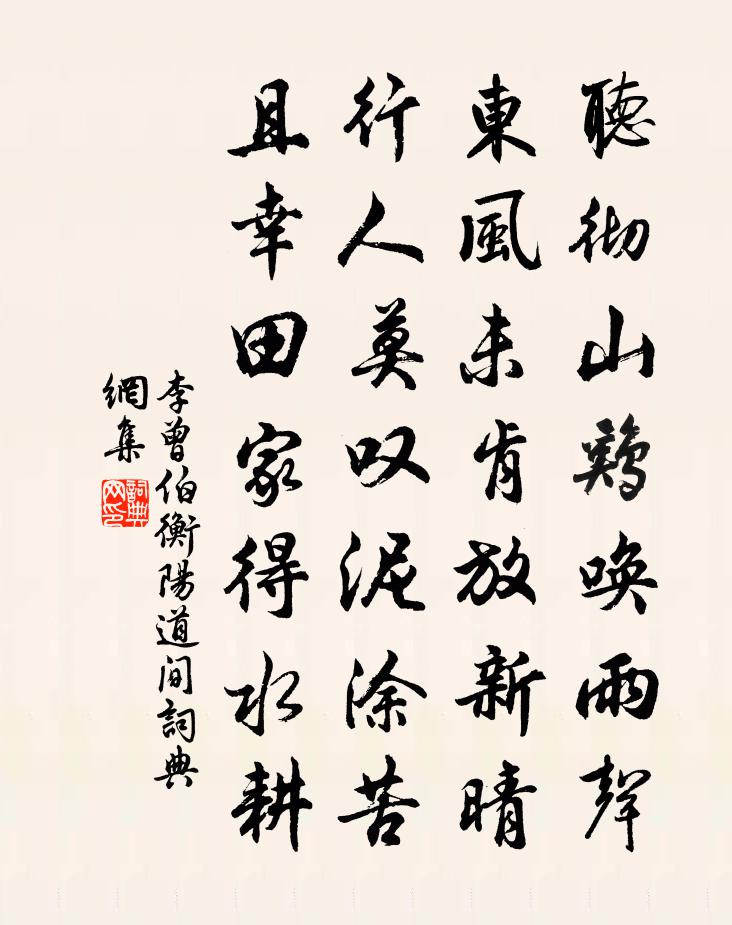 聽彻山鷄唤雨聲
東風未肯放新晴
行人莫叹泥涂苦
且幸田家得水耕
李曾伯衡陽道间詞典
網集
詞典网印